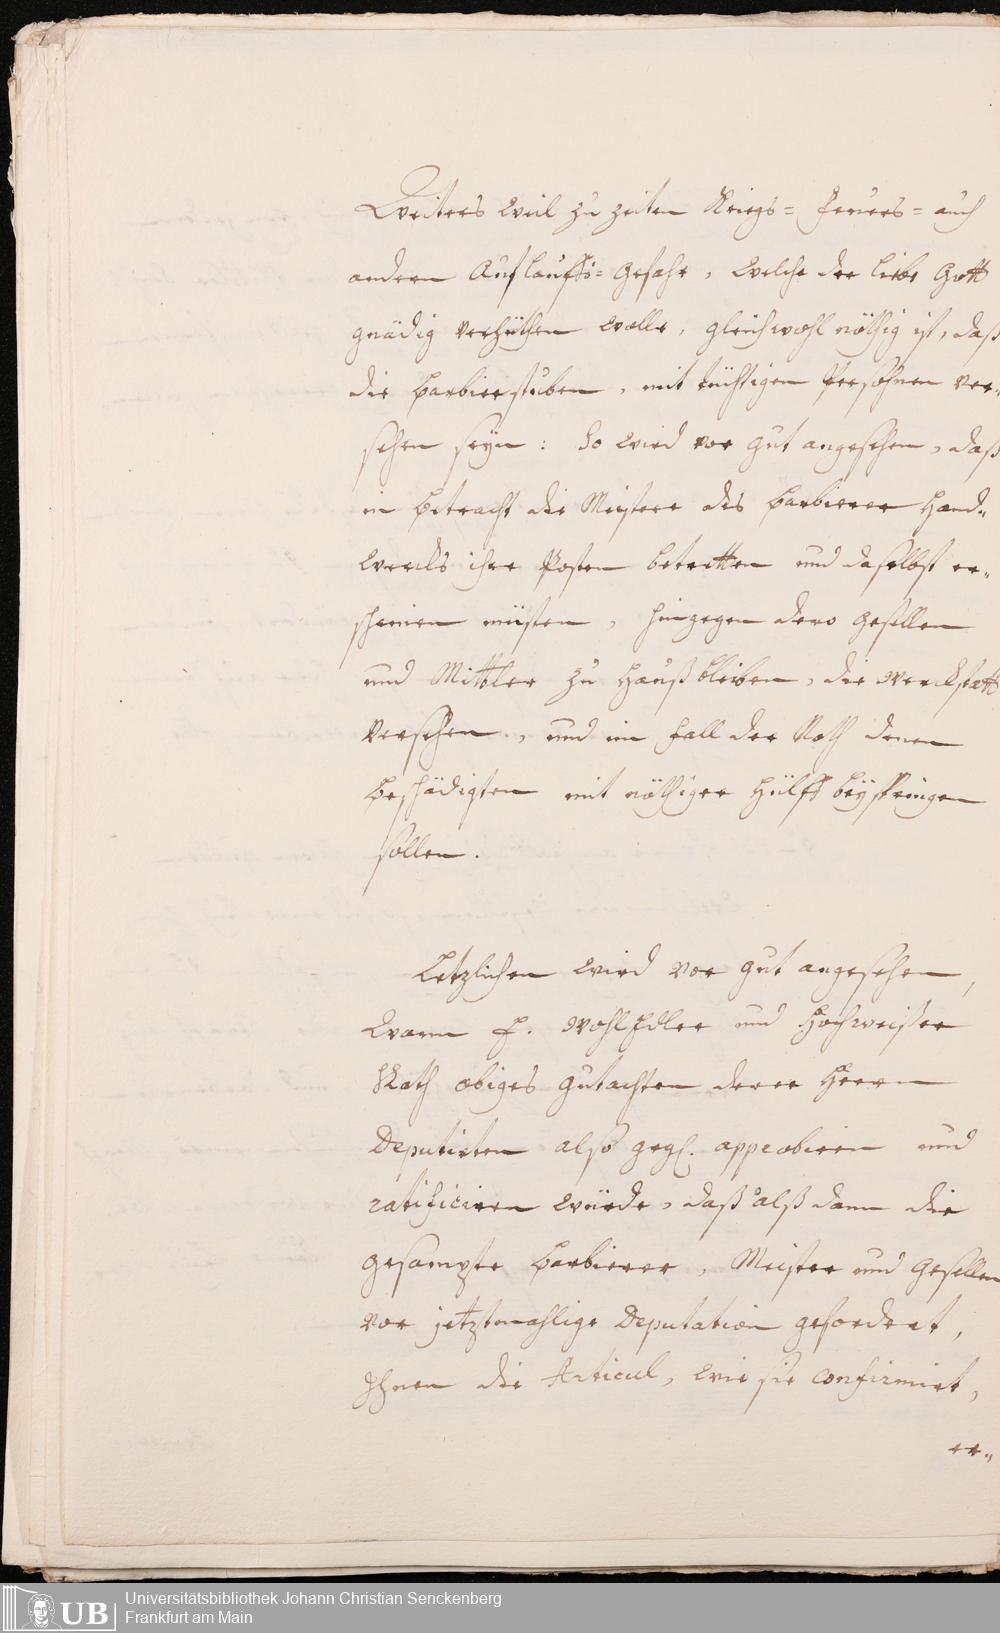 Weiters weil zu zeiten Kriegs= Feuers= auch
andern Auflauffs= gefahr, welche der liebe Gott
gnädig verhüthen wolle, gleichwohl nöthig ist, daß
die barbierstuben, mit tüchtigen Persohnen ver=
sehen seyn: So wird vor gut angesehen, daß
in betracht die Meistere des barbierer Hand=
wercks ihre Posten betretten und daselbst er=
scheinen müsten, hingegen dero gesellen
und Mittler zu Hauß bleiben, die Werckstatt
versehen, und im fall der Noth denen
beschädigten mit nöthiger Hülff beyspringen
sollen.
Letzlichen wird vor gut angesehen,
wann E. WohlEdler und Hochweiser
Rath obiges gutachten derer Herrn
Deputirten also approbiren und
ratificiren würde, daß alß dann die
gesampte barbierer, Meister und gesellen
vor jetztmahlige Deputation gefordert,
Ihnen die Articul, wie sie confirmirt,
er=
Universitätsbibliothek Johann Christian Senckenberg
Frankfurt am Main
UB